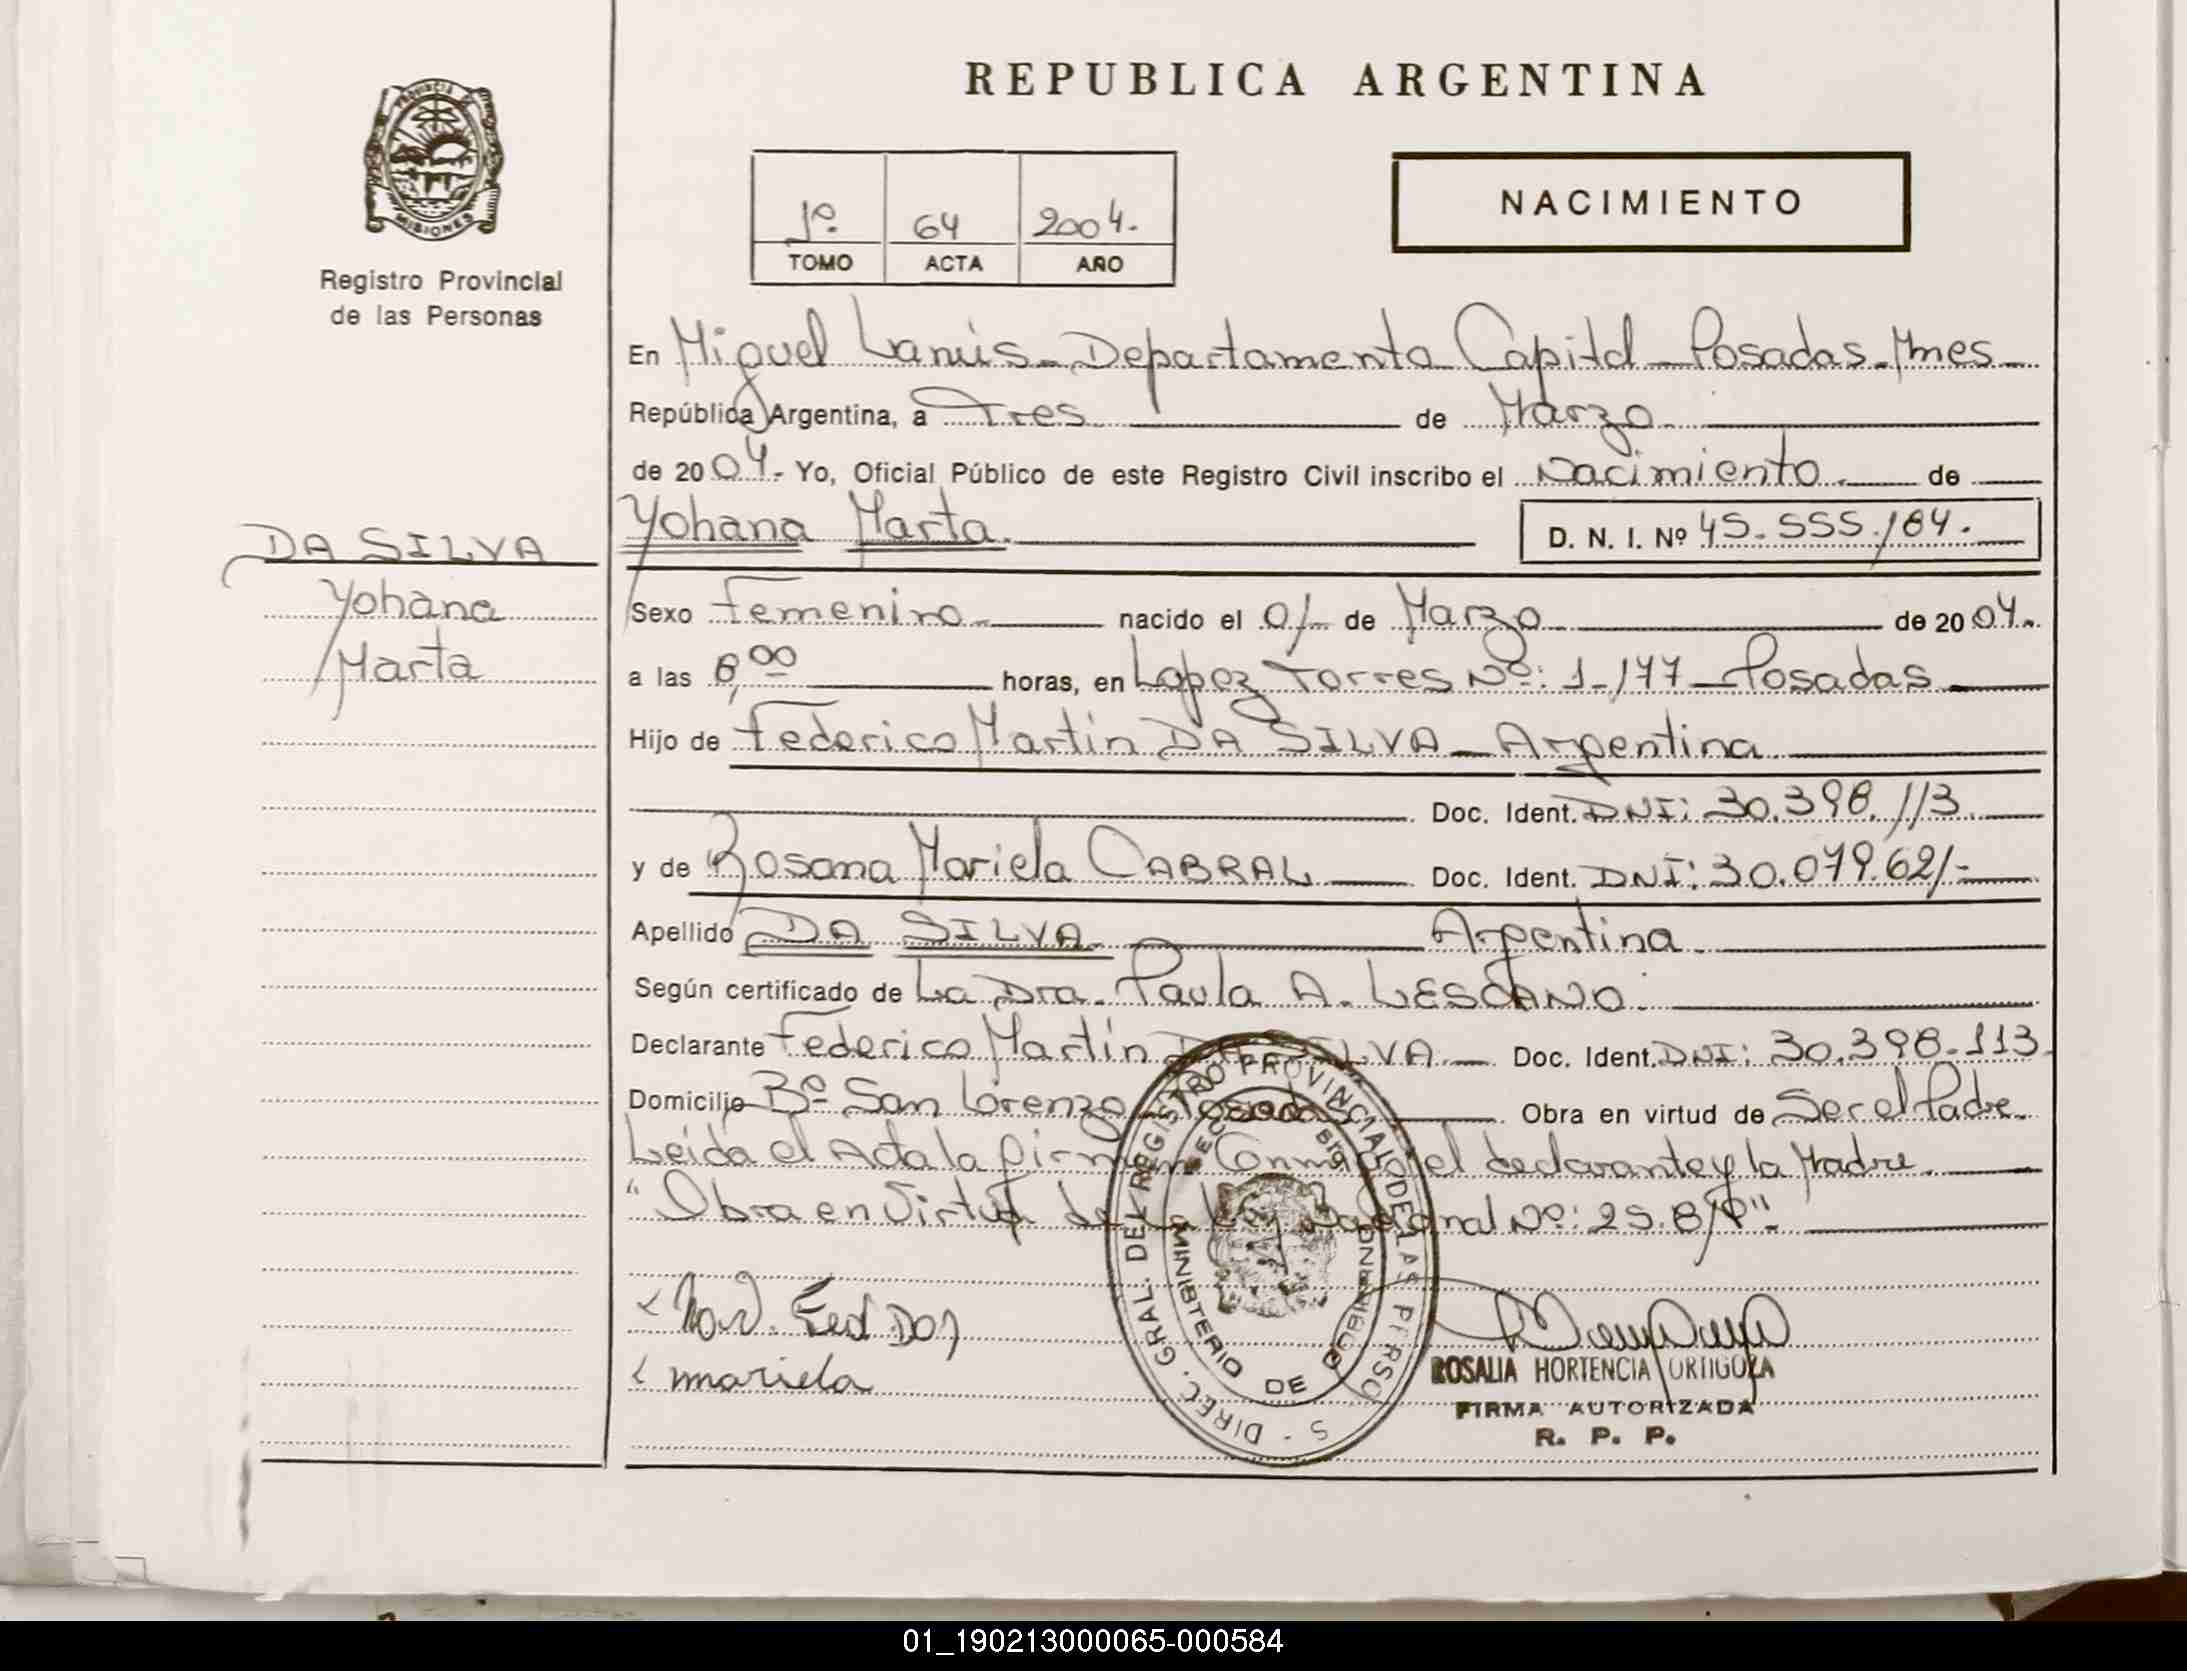 REPUBLICA ARGENTINA
PROVINCIA DE
MISIONES
Registro Provincial
de las Personas
1º. 64 2004.
TOMO ACTA AÑO
NACIMIENTO
En Miguel Lanús - Departamento Capital - Posadas - Mnes
República Argentina, a Tres de Marzo
de 2004. Yo, Oficial Público de este Registro Civil inscribo el Nacimiento de
DA SILVA
Yohana
Marta
Yohana Marta. D. N. I. Nº 45.555.184.
Sexo Femenino nacido el 01 de Marzo de 2004.
a las 8,00 horas, en Lopez Torres Nº: 1.177 - Posadas
Hijo de Federico Martin DA SILVA - Argentina
Doc. Ident. DNI: 30.398.113
y de Rosana Mariela CABRAL Doc. Ident. DNI: 30.079.621.-
Apellido DA SILVA Argentina
Según certificado de La Dra. Paula A. LESCANO
Declarante Federico Martin DA SILVA - Doc. Ident. DNI: 30.398.113.
Domicilio Bº San Lorenzo - Posadas Obra en virtud de Ser el Padre
Leida el Acta la firman Conmigo el declarante y la Madre.
"Obra en Virtud de La Ley Nacional Nº: 25.819".
mariela
DIREC. GRAL. DEL REGISTRO PROVINCIAL DE LAS PERSONAS
MINISTERIO DE GOBIERNO
ROSALIA HORTENCIA ORTIGOZA
FIRMA AUTORIZADA
R. P. P.
01_190213000065-000584